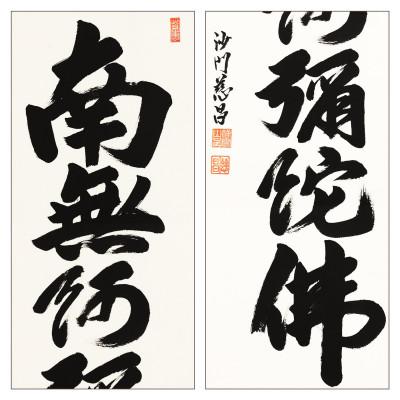 南無阿彌
阿彌陀佛
沙門慈昌